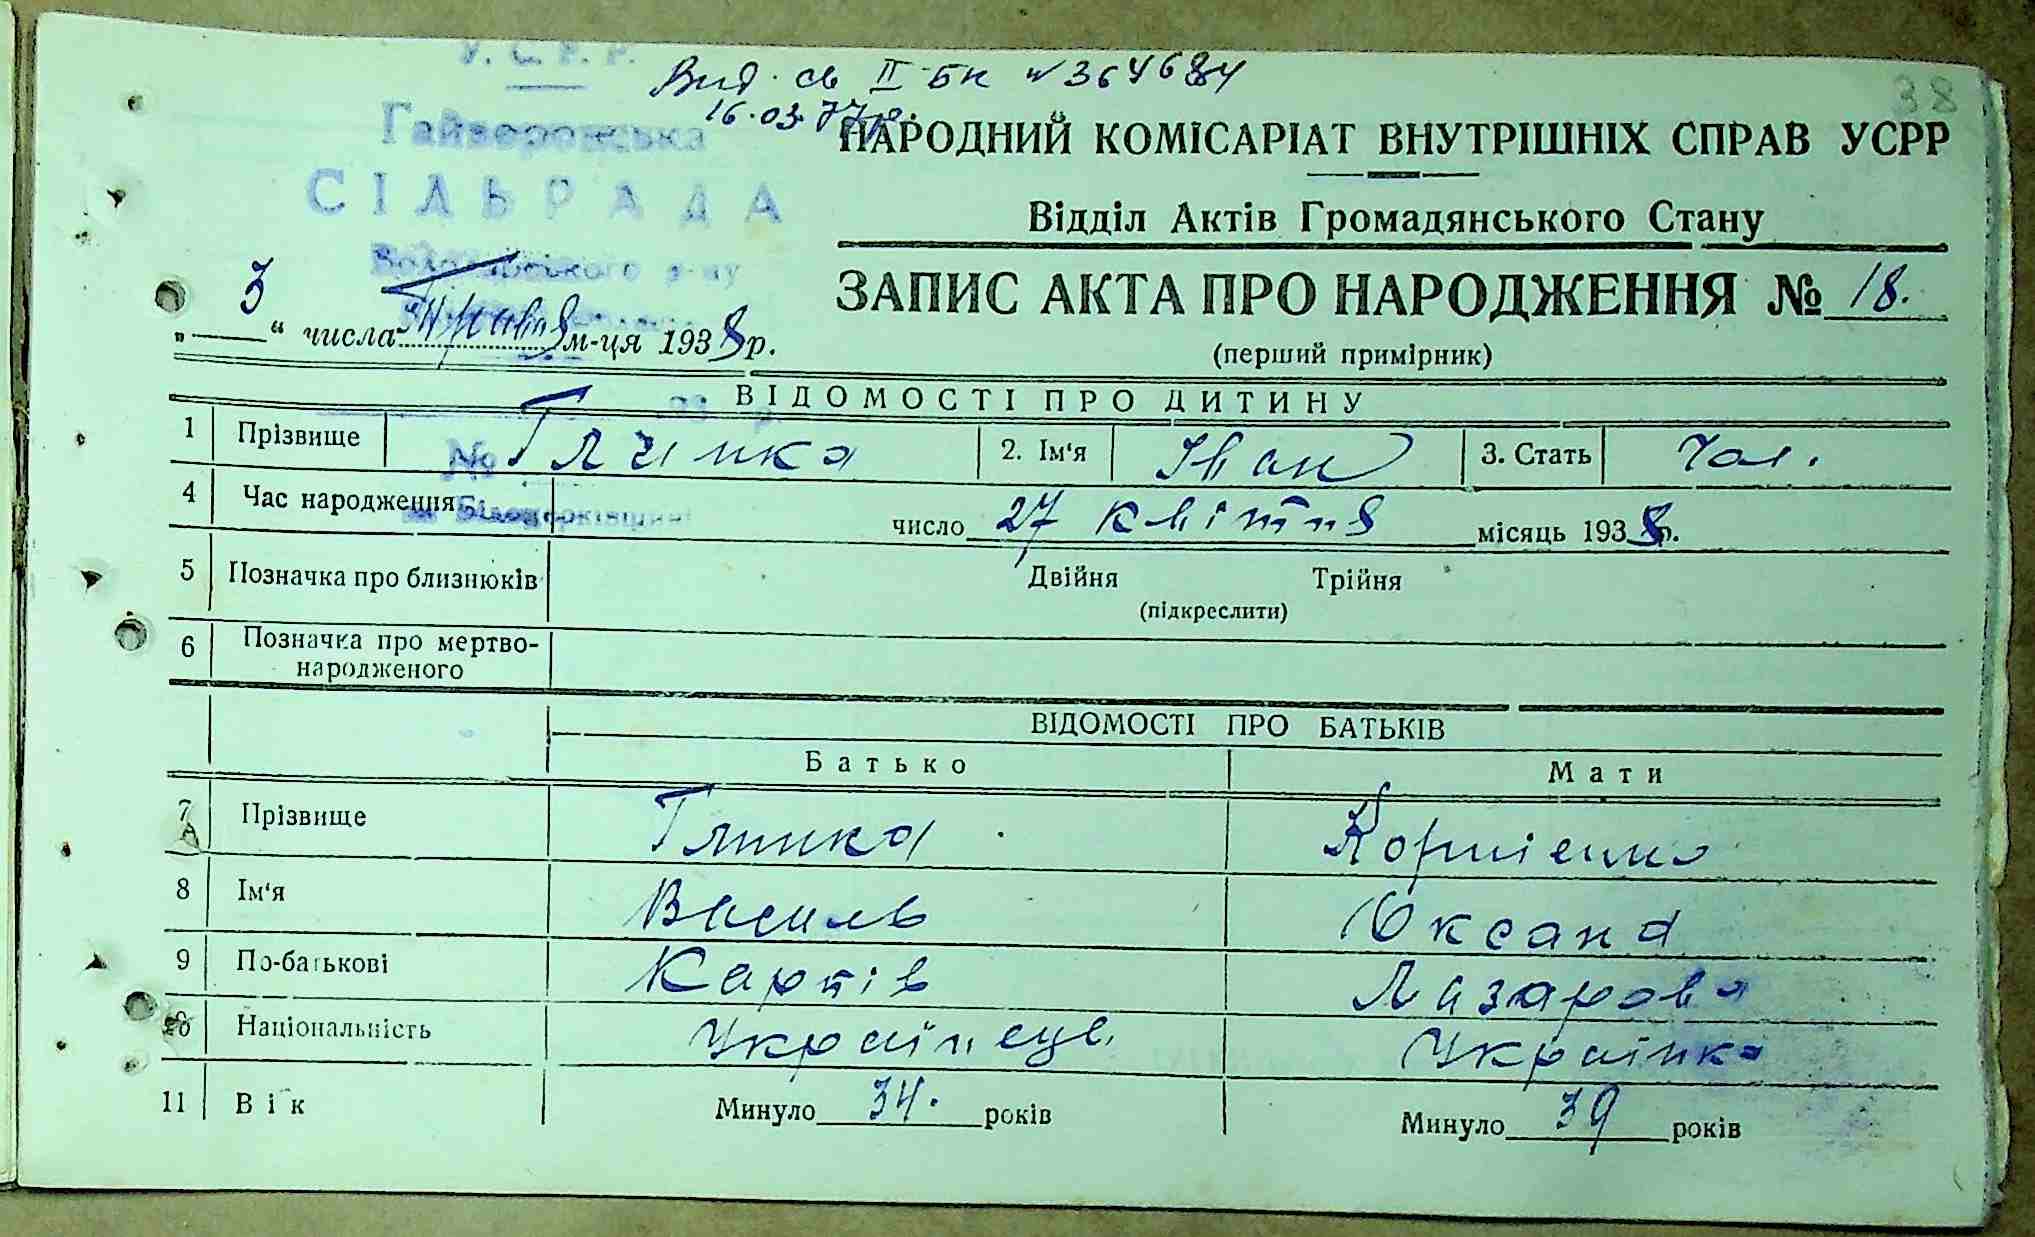 У.С.Р.Р.
Вид. св II-БК № 364684
38
16.03.77р.
Гайворонська
НАРОДНИЙ КОМІСАРІАТ ВНУТРІШНІХ СПРАВ УСРР
СІЛЬРАДА
Відділ Актів Громадянського Стану
Володарського р-ну
ЗАПИС АКТА ПРО НАРОДЖЕННЯ № 18.
„ 3 “ числа Травня м-ця 1938 р.
(перший примірник)
ВІДОМОСТІ ПРО ДИТИНУ
1 Прізвище Глинка 2. Ім'я Іван 3. Стать Чол.
№
4 Час народження число 27 квітня місяць 1938 р.
на Білоцерківщині
5 Позначка про близнюків Двійня Трійня
(підкреслити)
6 Позначка про мертво-
народженого
ВІДОМОСТІ ПРО БАТЬКІВ
Батько Мати
7 Прізвище Глинка Корнієнко
8 Ім'я Василь Оксана
9 По-батькові Карпів Лазарова
10 Національність Українець Українка
11 Вік Минуло 34. років Минуло 39 років